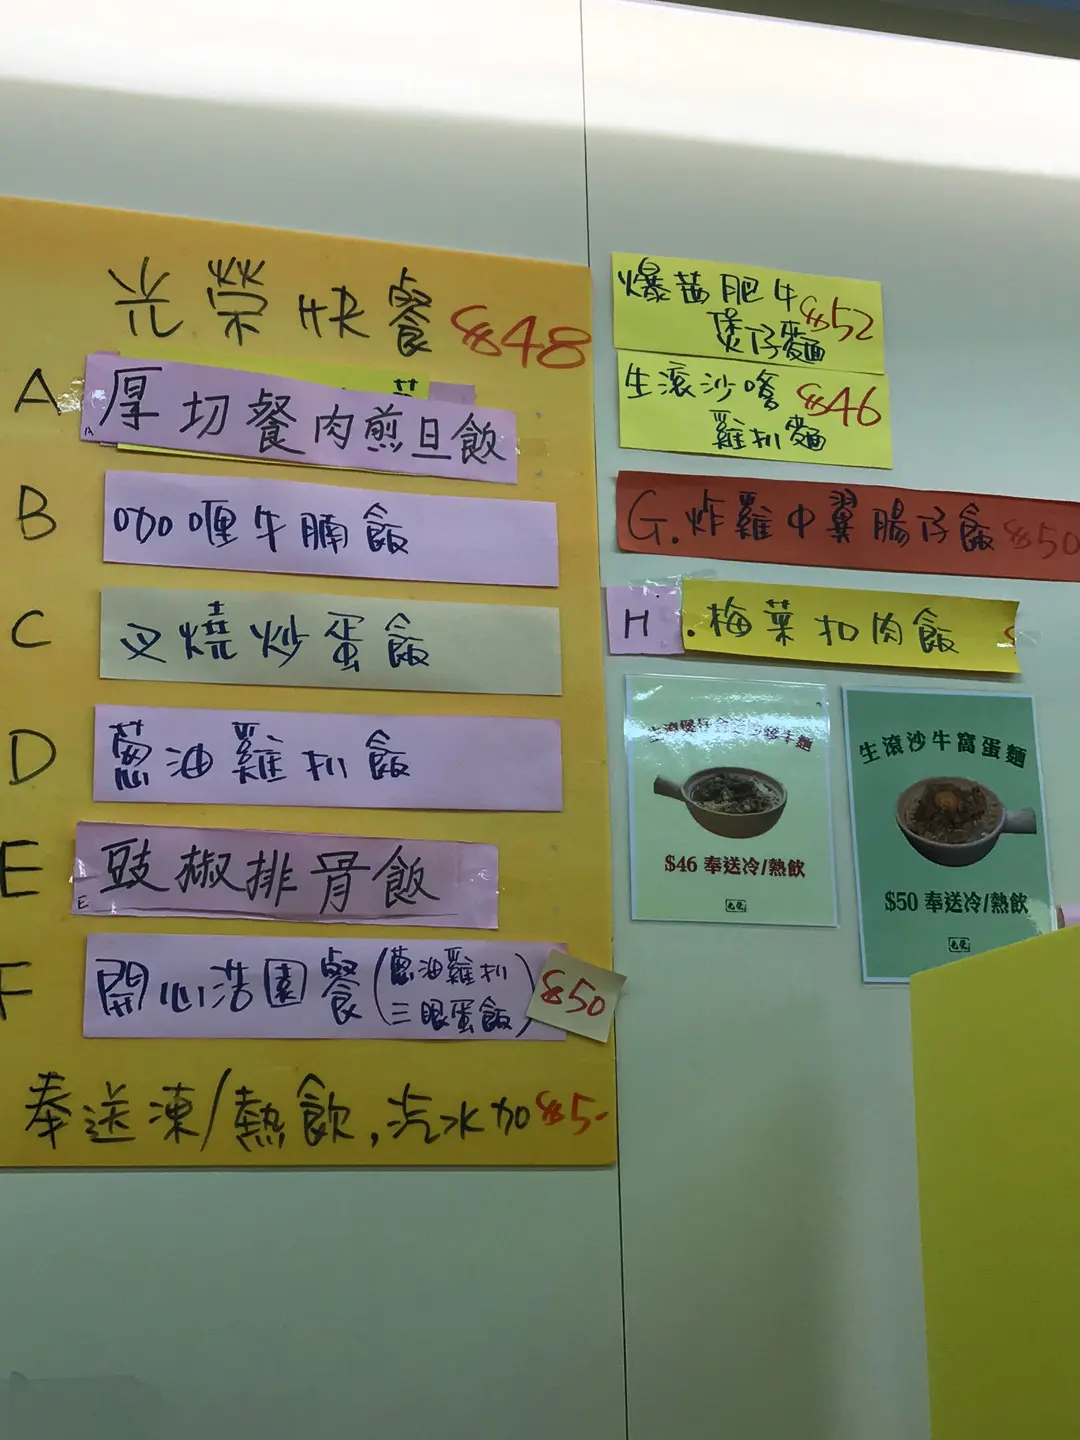 光榮快餐 $48
A 厚切餐肉煎旦飯
A
B 咖喱牛腩飯
C 叉燒炒蛋飯
D 蔥油雞扒飯
E 豉椒排骨飯
E
F 開心浩園餐(蔥油雞扒
三眼蛋飯) $50
奉送凍/熱飲,汽水加$5-
爆茜肥牛
煲仔麵 $52
生滾沙嗲
雞扒麵 $46
G.炸雞中翼腸仔飯 $50
H.梅菜扣肉飯
$46 奉送冷/熱飲
生滾沙牛窩蛋麵
$50 奉送冷/熱飲